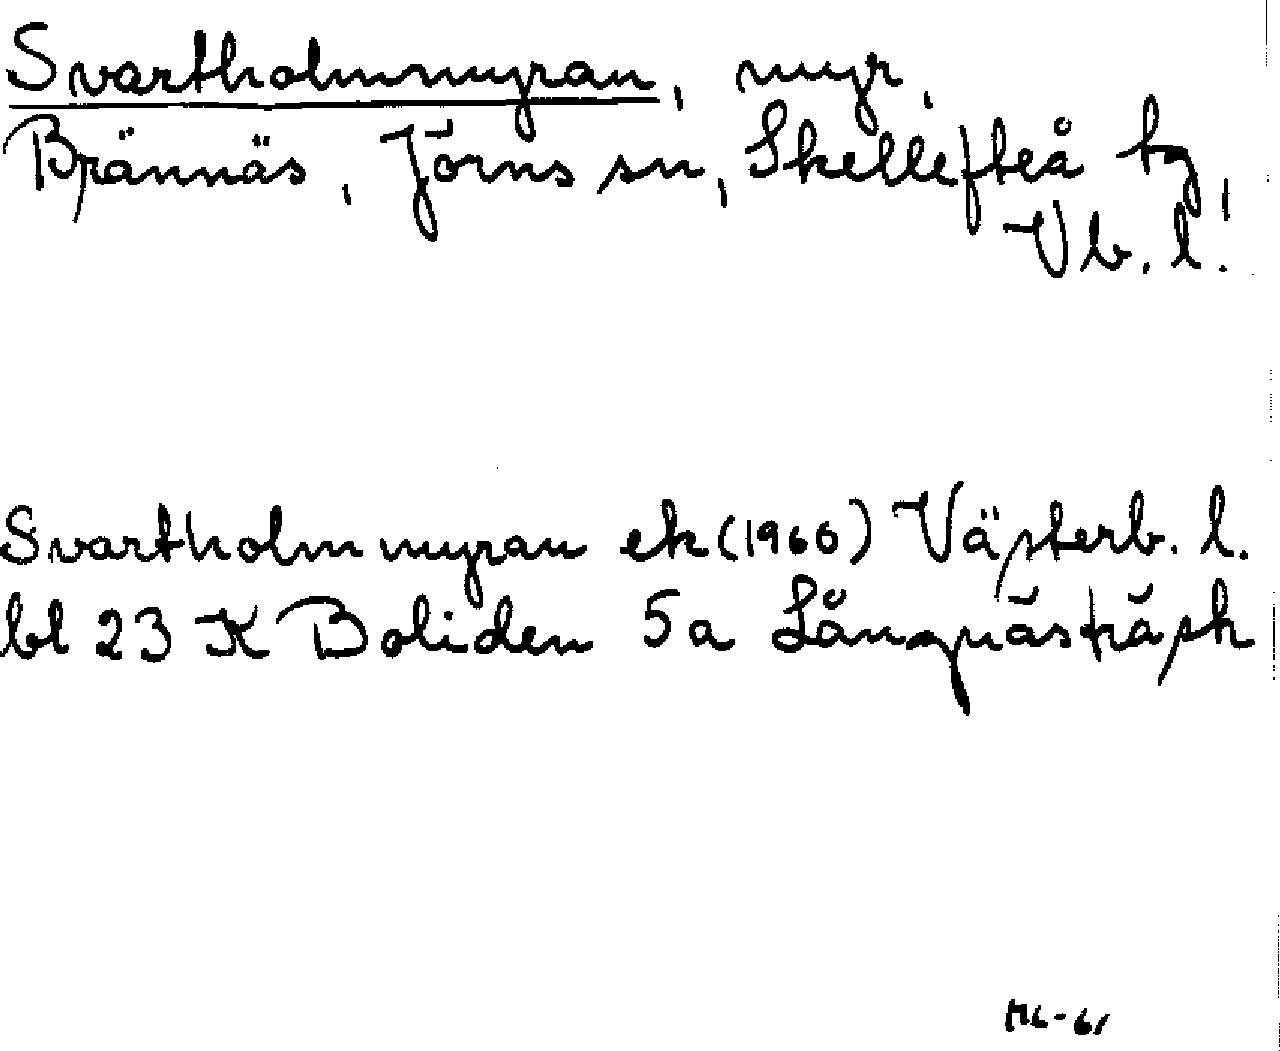 Svartholmmyran, myr,
Brännäs, Jörns sn, Skellefteå tg,
Vb. l.
Svartholmmyran ek (1960) Västerb. l.
bl 23 K Boliden 5a Långnästräsk